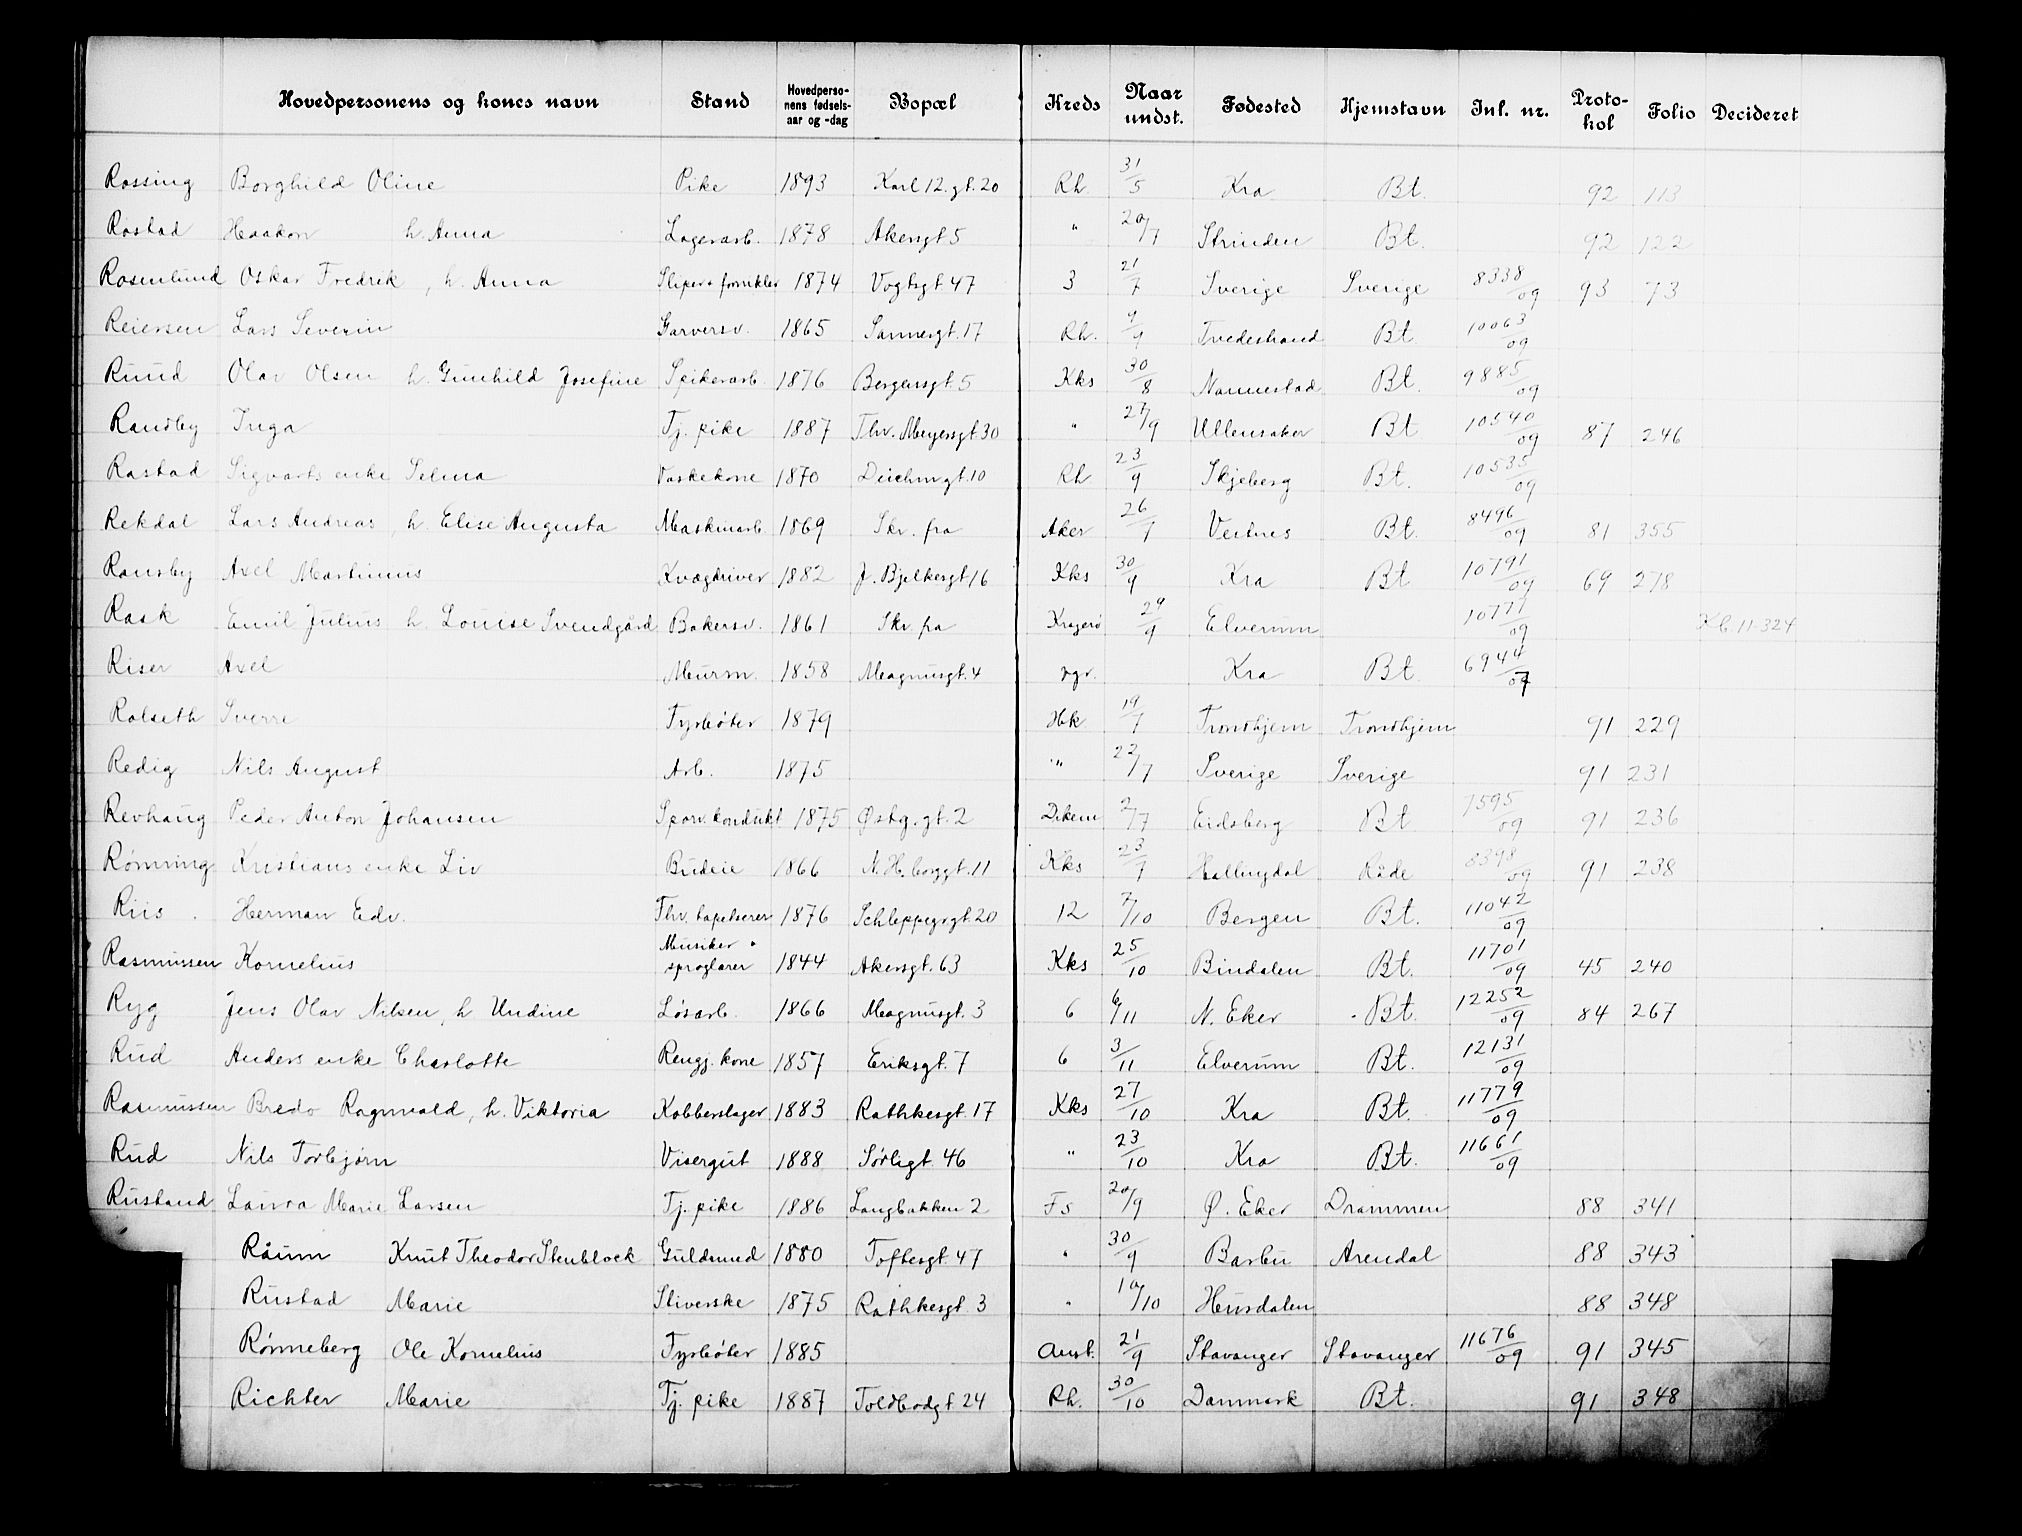 Hovedpersonens og kones navn | Stand | Hovedpersonens fødselsaar og -dag | Bopæl | Kreds | Naar undst. | Fødested | Hjemstavn | Inl. nr. | Protokol | Folio | Decideret
Rossing Borghild Oline | Pike | 1893 | Karl 12. gt. 20 | Rh. | 31/5 | Kra | Bt. | | 92 | 113
Rostad Haakon h. Anna | Lagerarb. | 1878 | Akersgt 5 | " | 20/7 | Strinden | Bt. | | 92 | 122
Rosenlund Oskar Fredrik, h. Anna | Sliper o fornikler | 1874 | Vogtsgt 47 | 3 | 21/7 | Sverige | Sverige | 8338/09 | 93 | 73
Reiersen Lars Severin | Garversv. | 1865 | Sannergt. 17 | Rh. | 9/9 | Tvedestrand | Bt. | 10063/09
Ruud Olav Olsen h. Gunhild Josefine | Spikerarb. | 1876 | Bergensgt 5 | Kks | 30/8 | Nannestad | Bt. | 9885/09
Randby Inga | Tj. pike | 1887 | Thv. Meyersgt. 30 | " | 27/9 | Ullensaker | Bt | 10540/09 | 87 | 246
Rastad Sigvarts enke Selma | Vaskekone | 1870 | Deichmgt. 10 | Rh | 23/9 | Skjeberg | Bt. | 10535/09
Rekdal Lars Andreas, h. Elise Augusta | Maskinarb. | 1869 | Skr. fra | Aker | 26/7 | Vestnes | Bt. | 8496/09 | 81 | 355
Ransby Axel Martinius | Kvægdriver | 1882 | J. Bjelkersgt 16 | Kks | 30/9 | Kra | Bt | 10791/09 | 69 | 278
Rask Emil Julius h. Louise Svendgård | Bakersv. | 1861 | Skr. fra | Kragerø | 29/9 | Elverum | | 10777/09 | | | Kb. 11-324
Riser Axel | Mursv. | 1858 | Magnusgt. 4 | | | Kra | Bt | 6944/07
Rolseth Sverre | Fyrbøter | 1879 | | Hk | 19/7 | Trondhjem | Trondhjem | | 91 | 229
Redig Nils August | Arb. | 1875 | | " | 22/7 | Sverige | Sverige | | 91 | 231
Revhaug Peder Anton Johansen | Sporv. kondukt | 1875 | Østg. gt. 2 | Dikem | 2/7 | Eidsberg | Bt | 7595/09 | 91 | 236
Rønning Kristians enke Liv | Budeie | 1866 | N. H. borggt. 11 | Kks | 23/7 | Hallingdal | Råde | 8398/09 | 91 | 238
Riis Herman Edv. | Thv. tapetserer | 1876 | Schleppegrgt. 20 | 12 | 7/10 | Bergen | Bt. | 11042/09
Rasmussen Kornelius | Musiker o sproglærer | 1844 | Akersgt. 63 | Kks | 25/10 | Bindalen | Bt. | 11701/09 | 45 | 240
Ryg Jens Olav Nilsen, h Undine | Løsarb. | 1866 | Magnusgt. 3 | 6 | 6/11 | N. Eker | Bt. | 12252/09 | 84 | 267
Rud Anders enke Charlotte | Rengj. kone | 1857 | Eriksgt. 7 | 6 | 3/11 | Elverum | Bt. | 12131/09
Rasmussen Bredo Ragnvald, h. Viktoria | Kobberslager | 1883 | Rathkesgt. 17 | Kks | 27/10 | Kra | Bt. | 11779/09
Rud Nils Torbjørn | Visergut | 1888 | Sørligt. 46 | " | 23/10 | Kra | Bt. | 11661/09
Rustand Laura Marie Larsen | Tj. pike | 1886 | Langbakken 2 | Fs | 20/9 | Ø. Eker | Drammen | | 88 | 341
Råum Knut Theodor Stenblock | Guldsmed | 1880 | Toftesgt. 47 | " | 30/9 | Barbu | Arendal | | 88 | 343
Rustad Marie | Sliverske | 1875 | Rathkesgt. 3 | " | 10/10 | Hurdalen | | | 88 | 348
Rønneberg Ole Kornelius | Fyrbøter | 1885 | | Anst. | 21/9 | Stavanger | Stavanger | 11676/09 | 91 | 345
Richter Marie | Tj. pike | 1887 | Toldbodgt. 24 | Rh. | 30/10 | Danmark | Bt. | | 91 | 348